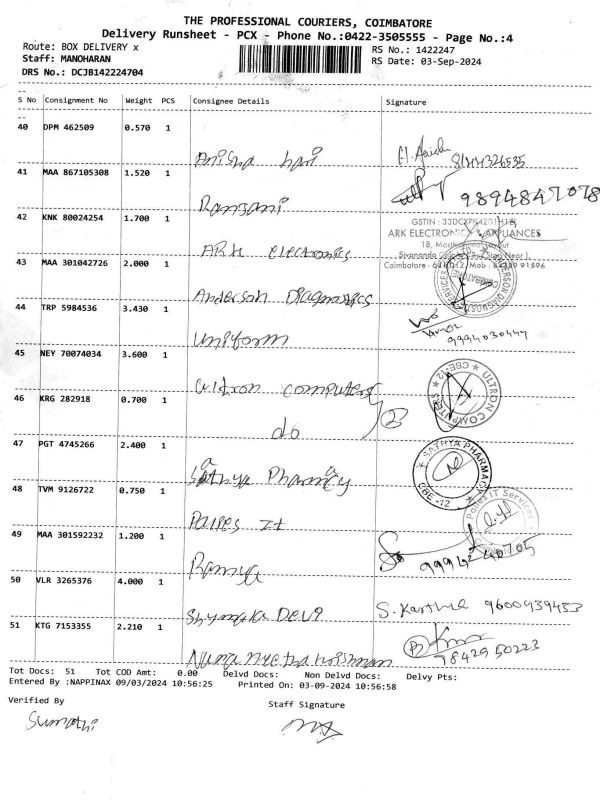 THE PROFESSIONAL COURIERS, COIMBATORE
Delivery Runsheet - PCX - Phone No.:0422-3505555 - Page No.:4
Route: BOX DELIVERY x
RS No.: 1422247
Staff: MANOHARAN
RS Date: 03-Sep-2024
DRS No.: DCJB142224704
S No Consignment No Weight PCS Consignee Details Signature
40 DPM 462509 0.570 1
Anisha hari
8144326535
41 MAA 867105308 1.520 1
9894847078
Ramsani
42 KNK 80024254 1.700 1
ARK ELECTRONICS & APPLIANCES
ARK electronics
43 MAA 301042726 2.000 1
Coimbatore - 641012
Anderson Diagnostics
44 TRP 5984536 3.430 1
9994030447
uniform
45 NEY 70074034 3.600 1
ultron computers
ULTRON COMPUTERS ★ CBE-12 ★
46 KRG 282918 0.700 1
do
2
47 PGT 4745266 2.400 1
Sathya Pharmacy
★ SATHYA PHARMACY ★ CBE-12
48 TVM 9126722 0.750 1
IT Services
It
49 MAA 301592232 1.200 1
Ramya
50 VLR 3265376 4.000 1
S. Karthik 9600939453
Devi
51 KTG 7153355 2.210 1
7842950223
Tot Docs: 51 Tot COD Amt: 0.00 Delvd Docs: Non Delvd Docs: Delvy Pts:
Entered By :NAPPINAX 09/03/2024 10:56:25 Printed On: 03-09-2024 10:56:58
Verified By
Staff Signature
Sumathi